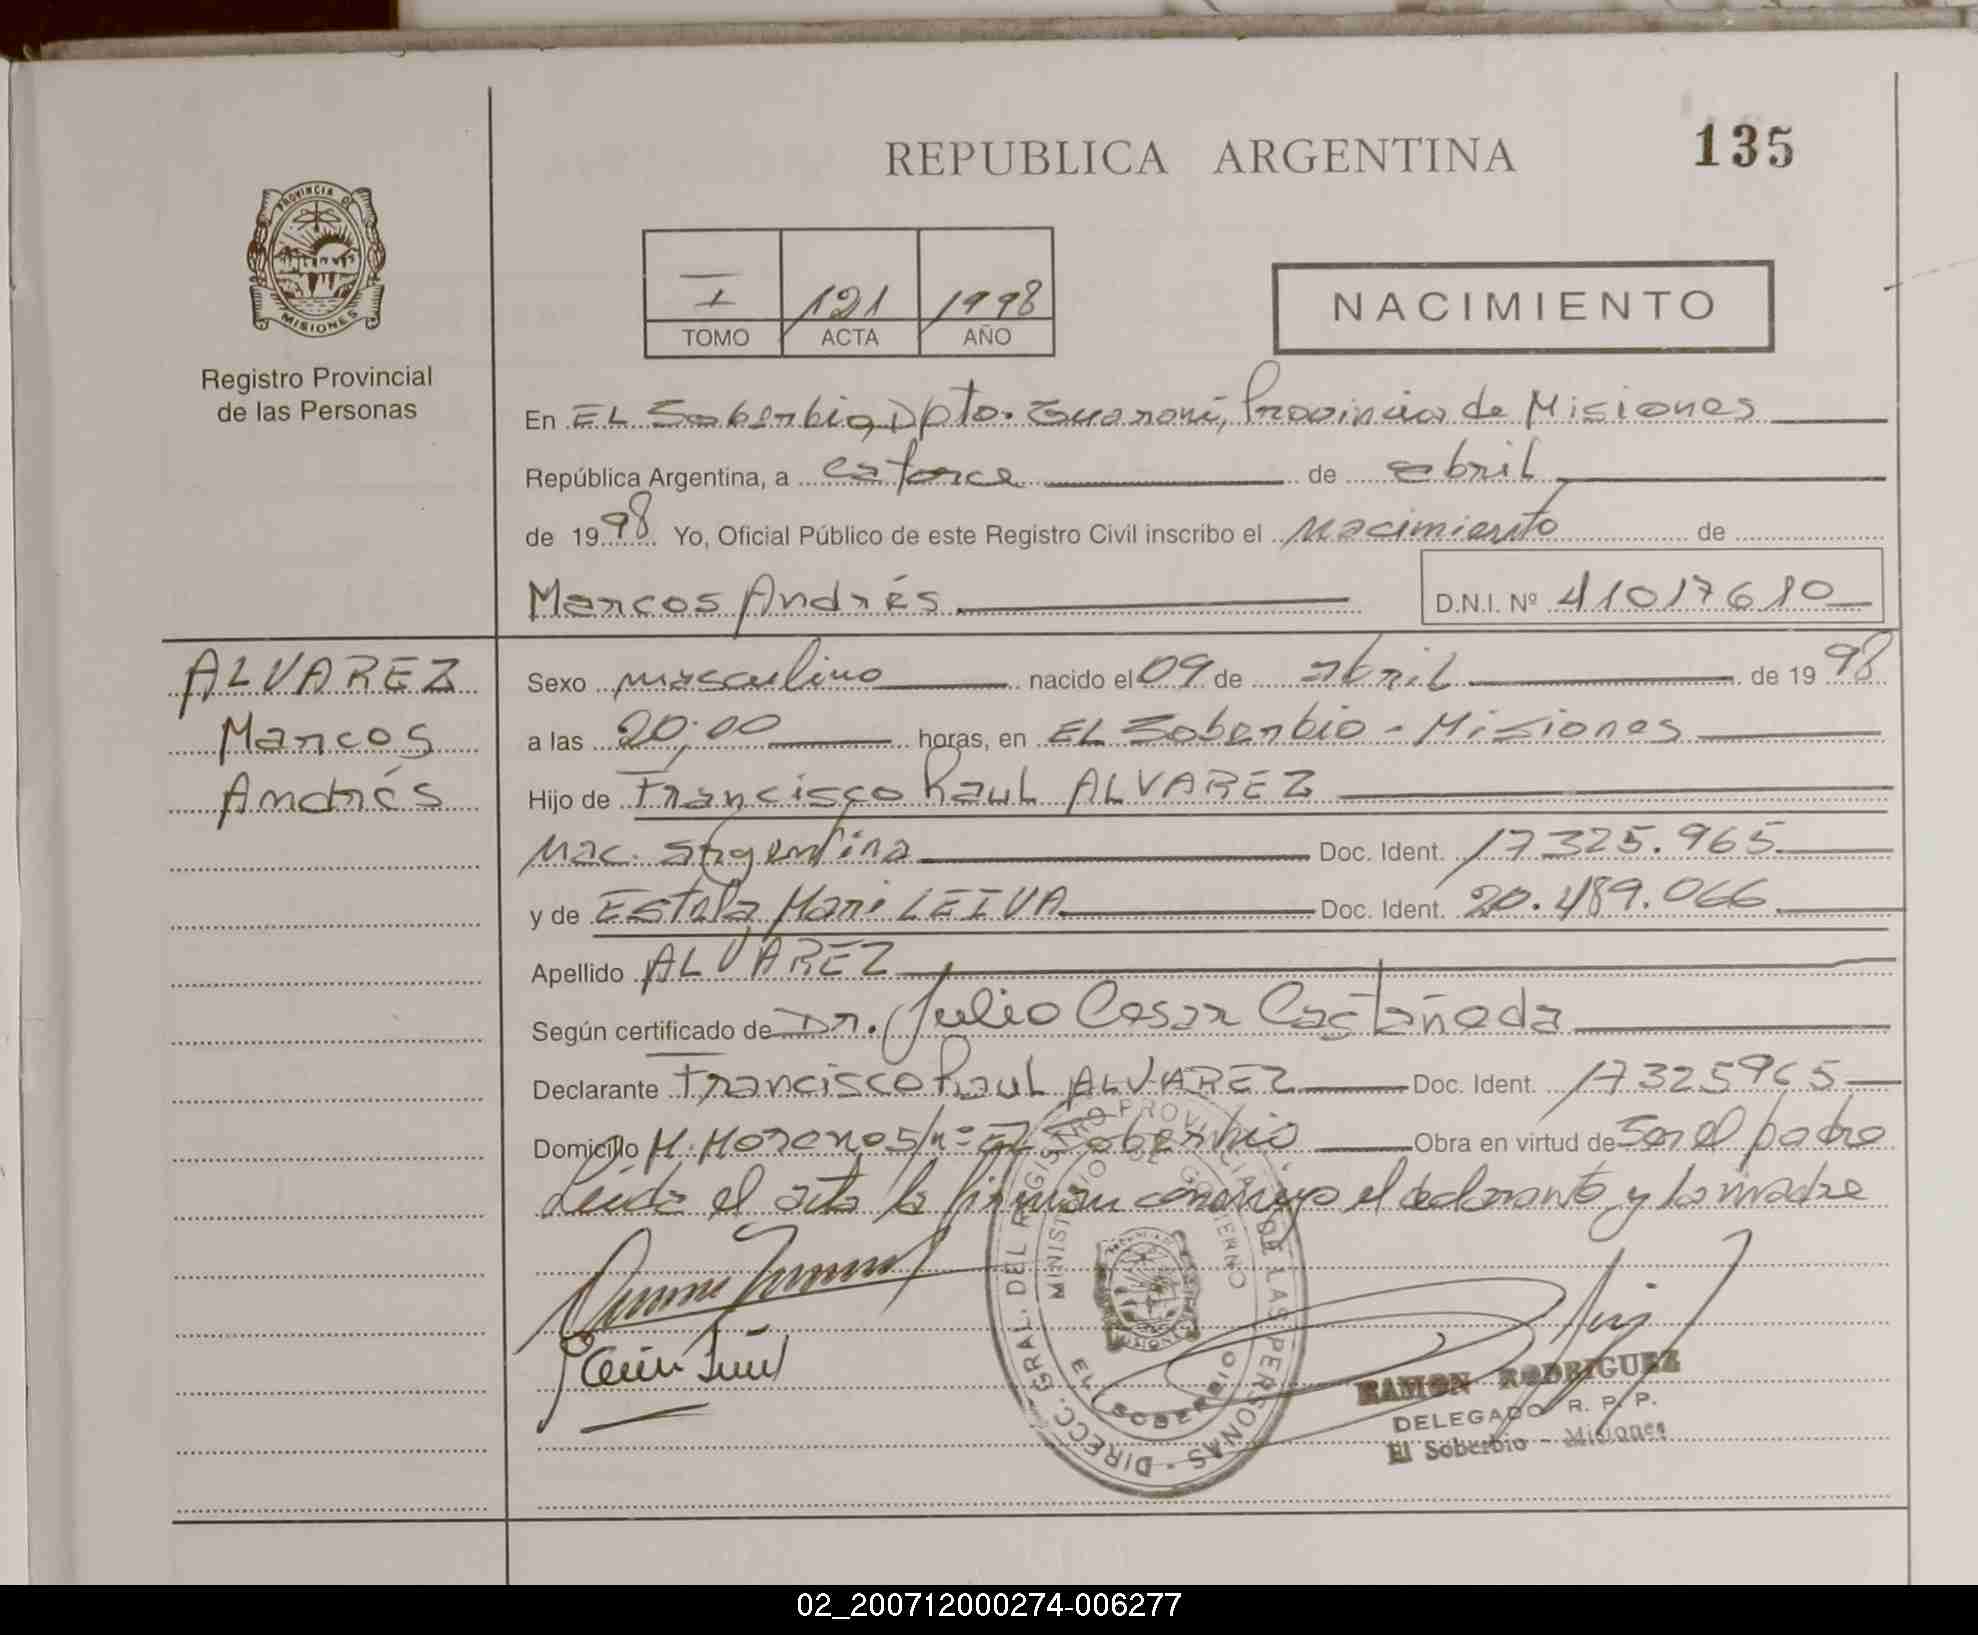 REPUBLICA ARGENTINA
135
PROVINCIA DE
MISIONES
Registro Provincial
de las Personas
I 121 1998
TOMO ACTA AÑO
NACIMIENTO
En EL Soberbio, Dpto. Guaraní, Provincia de Misiones
República Argentina, a catorce de abril
de 1998 Yo, Oficial Público de este Registro Civil inscribo el Nacimiento de
Marcos Andrés D.N.I. Nº 41017610
ALVAREZ
Marcos
Andrés
Sexo masculino nacido el 09 de abril de 1998
a las 20:00 horas, en EL Soberbio - Misiones
Hijo de Francisco Raul ALVAREZ
Nac. argentina Doc. Ident. 17325.965
y de Estela Mari LEIVA Doc. Ident. 20.489.066
Apellido ALVAREZ
Según certificado de Dr. Julio Cesar Castañeda
Declarante Francisco Raul ALVAREZ Doc. Ident. 17325965
Domicilio M. Moreno s/nº El Soberbio Obra en virtud de Ser el padre
Leida el acta la firman conmigo el declarante y la madre
DIRECC. GRAL. DEL REGISTRO PROVINCIAL DE LAS PERSONAS
MINISTERIO DE GOBIERNO
EL SOBERBIO
RAMON RODRIGUEZ
DELEGADO R. P. P.
El Soberbio - Misiones
02_200712000274-006277